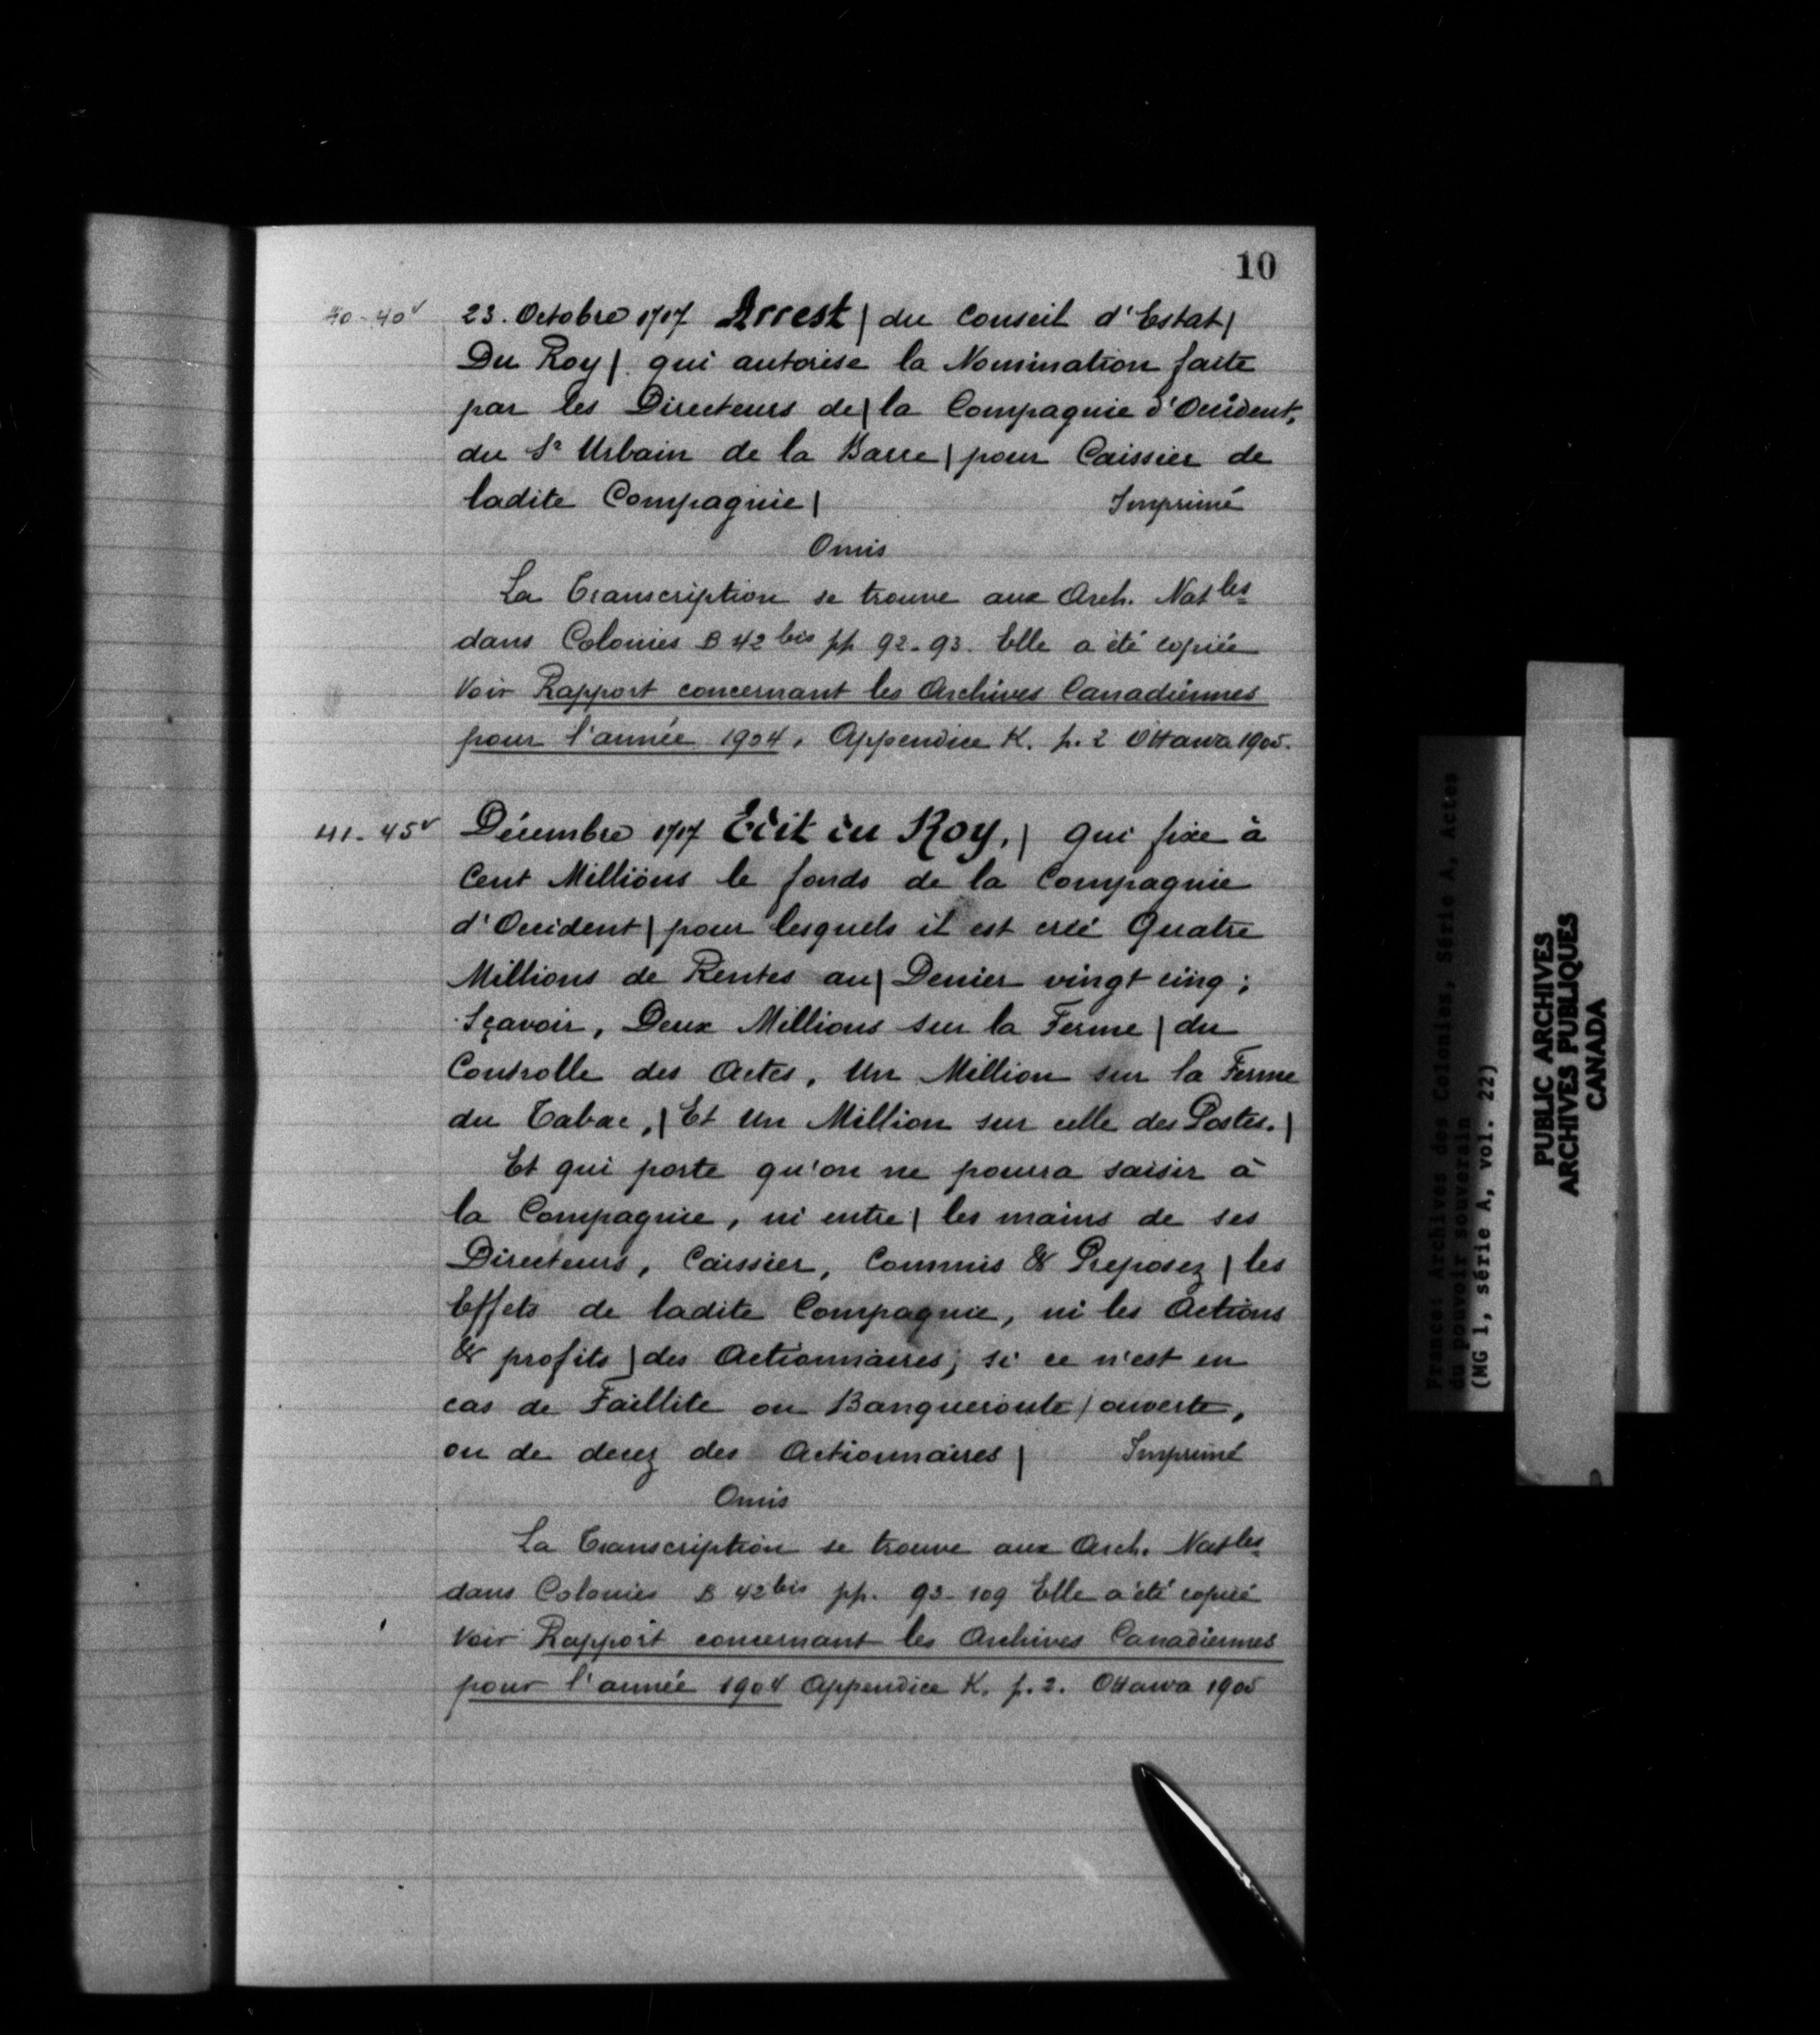 10
40-40v 23. Octobre 1717 Arrest | du Conseil d'Estat |
Du Roy | qui autorise la Nomination faite
par les Directeurs de | la Compagnie d'Occident,
du Sr Urbain de la Barre | pour Caissier de
ladite Compagnie | Imprimé
Omis
La Transcription se trouve aux Arch. Natles
dans Colonies B 42 bis pp 92-93. Elle a été copiée
Voir Rapport concernant les Archives Canadiennes
pour l'année 1904, Appendice K. p. 2 Ottawa 1905.
41-45v Décembre 1717 Edit du Roy, | qui fixe à
Cent Millions le fonds de la Compagnie
d'Occident | pour lesquels il est créé Quatre
Millions de Rentes au | Denier vingt cinq ;
Sçavoir, Deux Millions sur la Ferme | du
Controlle des Actes, Un Million sur la Ferme
du Tabac, | Et Un Million sur celle des Postes. |
Et qui porte qu'on ne pourra saisir à
la Compagnie, ni entre | les mains de ses
Directeurs, Caissier, Commis & Preposez | les
Effets de ladite Compagnie, ni les Actions
& profits | des Actionnaires ; si ce n'est en
cas de Faillite ou Banqueroute | ouverte,
ou de decez des Actionnaires | Imprimé
Omis
La Transcription se trouve aux Arch. Natles
dans Colonies B 42 bis pp. 93-109 Elle a été copiée
Voir Rapport concernant les Archives Canadiennes
pour l'année 1904 Appendice K. p. 2. Ottawa 1905
France: Archives des Colonies, Série A, Actes
du pouvoir souverain
(MG 1, série A, vol. 22)
PUBLIC ARCHIVES
ARCHIVES PUBLIQUES
CANADA